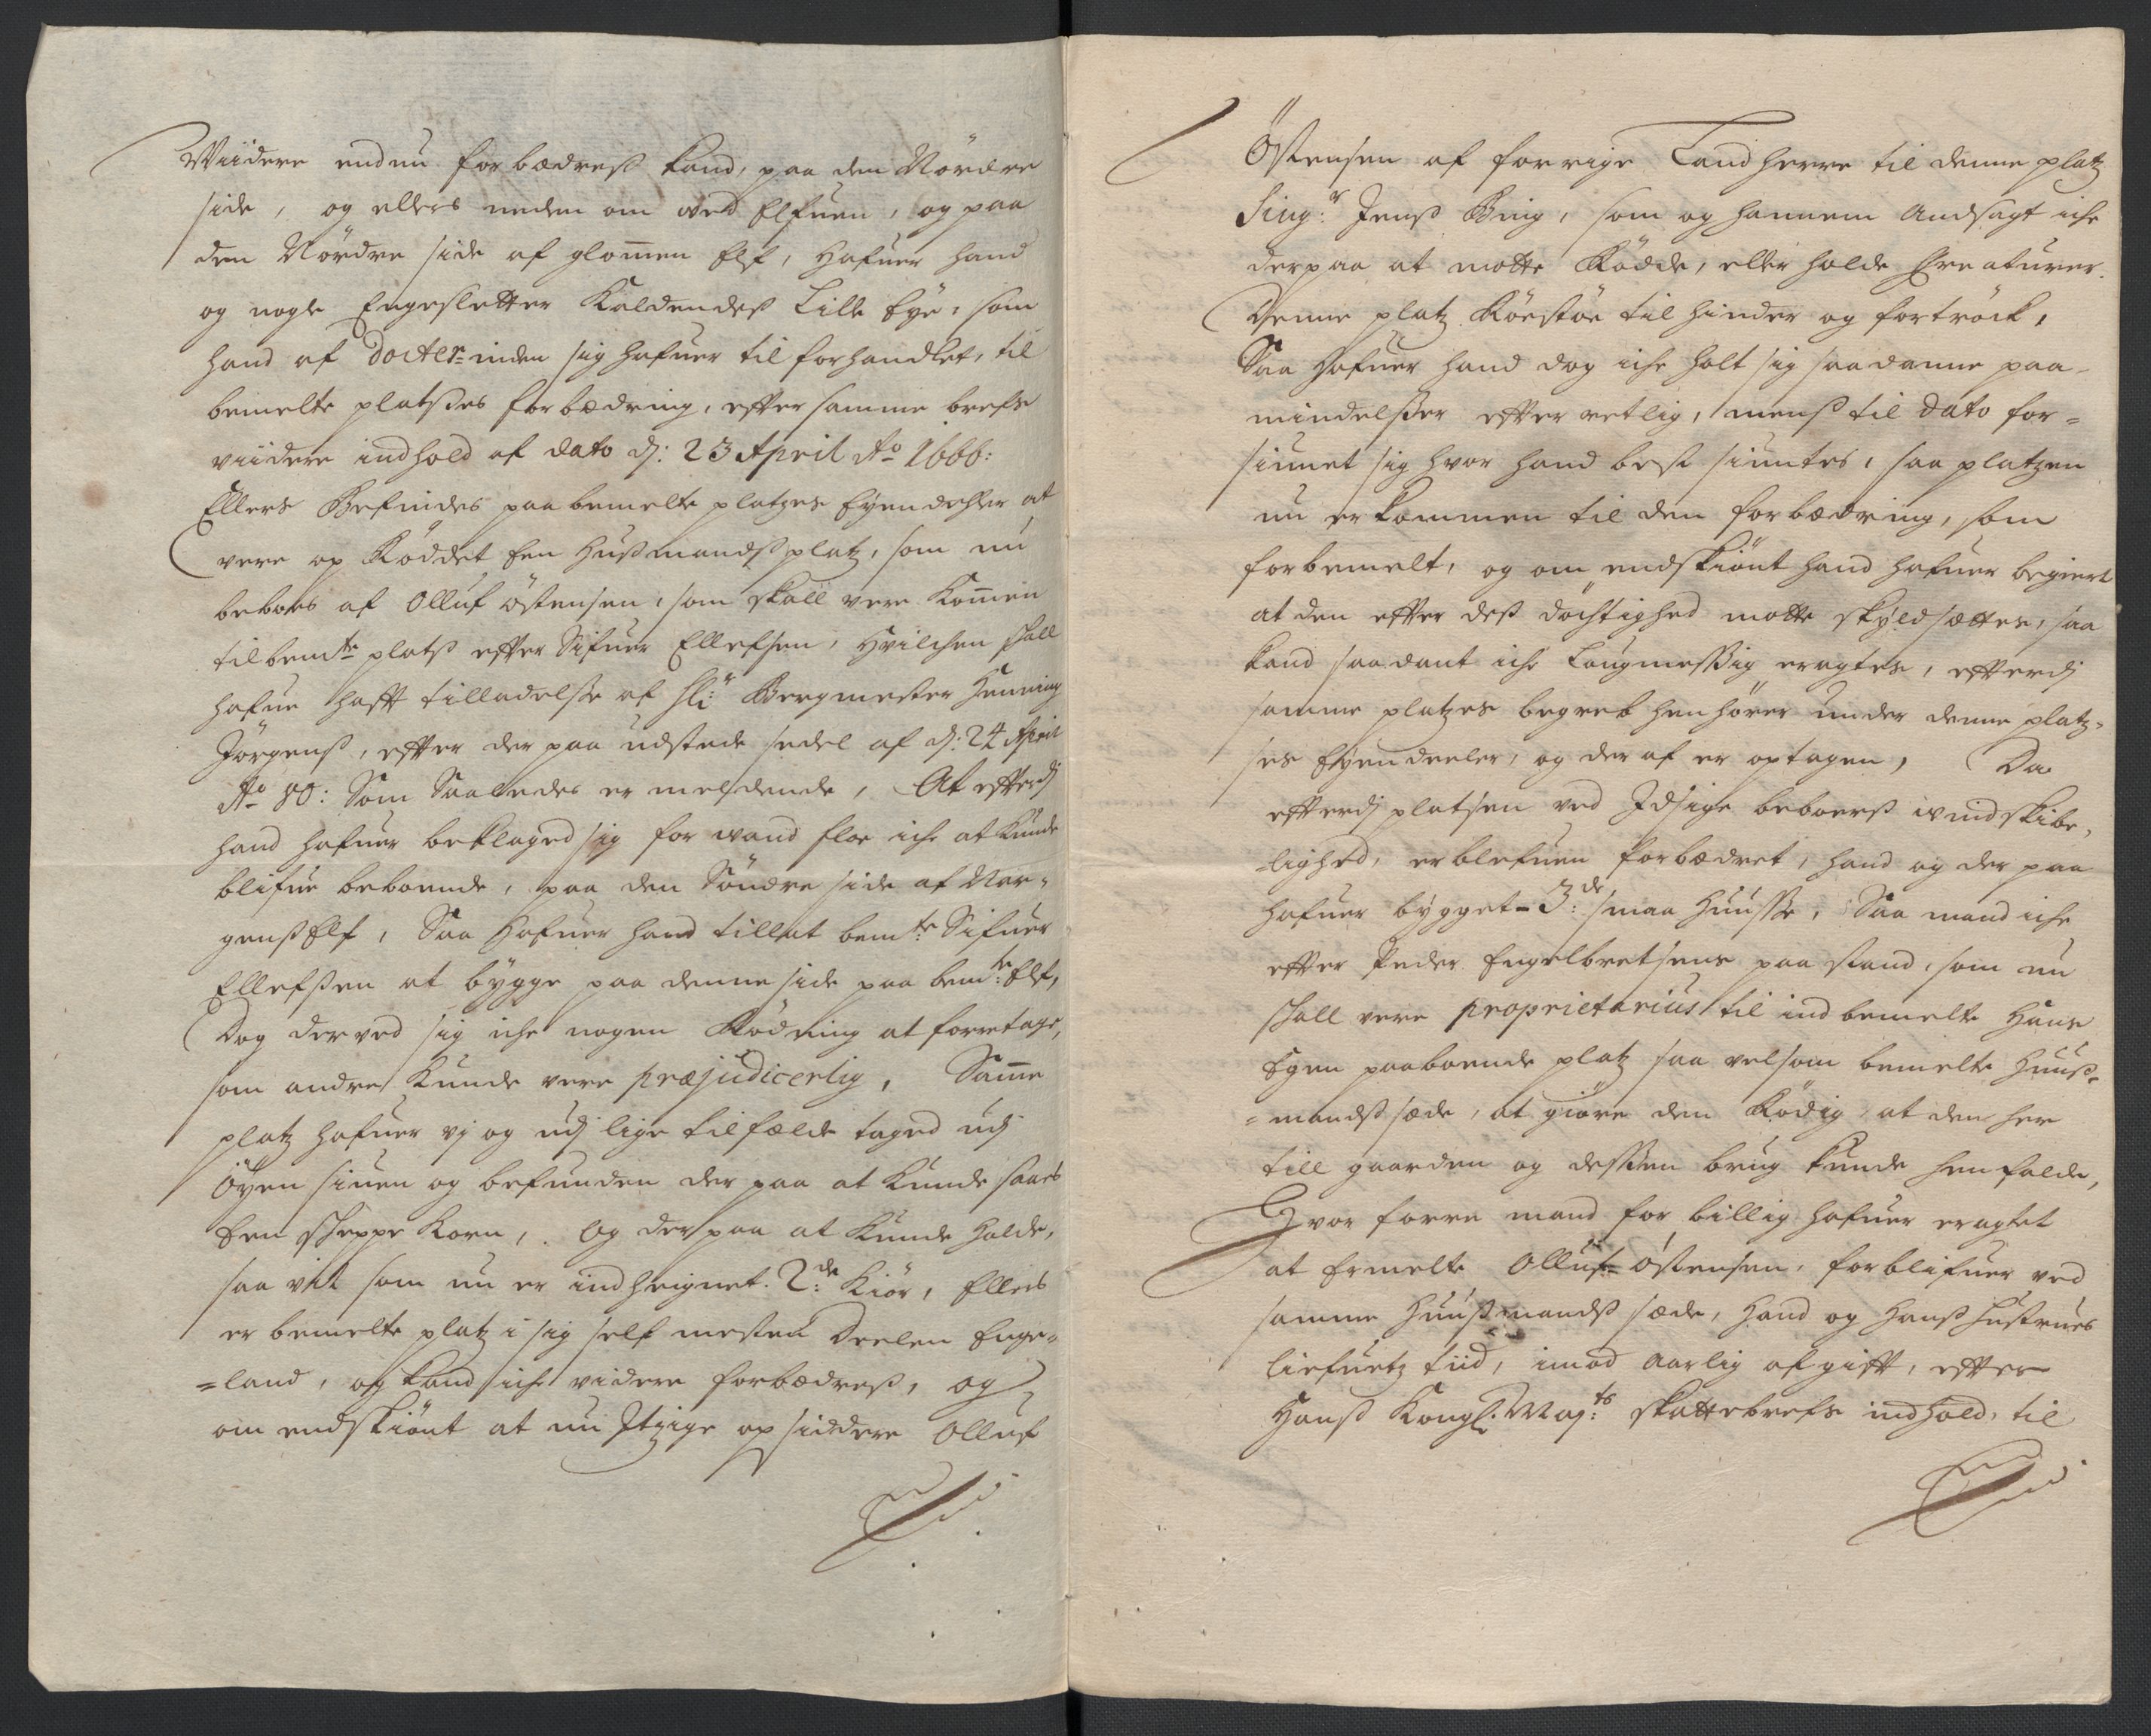 Wiidere endnu forbædreß kand, paa den Nördre
side, og ellers neden om ved Elfuen, og paa
den Nördre side af glom̄en Elf, Hafuer hand
og nogle Engesletter Kaldendeß Lille Eÿe, som
hand af Docter-inden sig hafuer til forhandlet, til
bemelte platzses forbædring, effter samme brefs
viidere indhold af dato dj: 23 April Ao 1666:
Ellers Befindes paa bemelte platzes Eÿendehler at
vere op Röddet Een Hußmandßplatz, som nu
beboes af Olluf Östensen, som skall vere Kom̄en
til bemte plats effter Sifuer Ellefsen, Hvilchen skall
hafue hafft tilladelsse af Sl: Hr Bergmester Henning
Jörgenß, effter der paa udstede sedel af dj: 24 April
Ao 80: Som Saaledes er meldende, At efftterdj
hand hafuer beklaged sig for vand floe iche at kunde
blifue beboende, paa den Söndre side af Nor-
genß Elf, Saa Hafuer hand tillat bemte Sifuer
Ellefsen at bÿgge paa denne side paa bemte: Elf,
Dog derved sig iche nogen Rödning at forretage,
som andre Kunde vere præjudicerlig, Sam̄e
platz hafuer vj og udj lige tilfælde taged udj
Öÿen siuen og befunden der paa at Kunde saaes
Een skeppe Korn, og der paa at Kunde Holde,
saa vit som nu er indheignet. 2de: Kiör, Ellers
er bemelte platz i sig self mesten Deelen Enge-
=land, og kand iche videre forbædreß, og
om endskiönt at nu Itzige opsiddere Olluf
Östensen af forrige Landherre til denne platz
Sing:r Jenß Bing, som og hannem Andsagt iche
derpaa at motte Rödde, eller holde Creaturer.
Denne platz Röestöe til hinder og fortröck,
Saa Hafuer hand dog iche holt sig saadanne paa-
mindelsser effter retlig, menß til dato for-
siunet sig hvor hand best siuntes, saa platzen
nu er kommen til den forbædring, som
forbemelt, og om endskiönt hand hafuer begiert
at den effter deß döchtighed motte skÿldsættes, saa
kand saadant iche Laugmessig eragtes, effterdj
samme platzes begreb henhörer under denne platz-
ses Eÿendeeler, og der af er optagen, Da
effterdj platsen ved Idsige beboers windskibe-
-lighed, er blefuen forbædret, hand og der paa
hafuer bÿgget - 3de: smaa Huusse, Saa mand iche
effter Peder Engelbretsens paa stand, som nu
skall vere proprietarius til ind bemelte Hans
Egen paaboende platz saa velsom bemelte Huuß-
=mandß sæde, at giöre den Rödig, at den her
till gaarden og dessen brug kunde henfalde,
Hvor forre mand for billig hafuer eragtet
at Ermelte Olluf Östensen, forblifuer ved
samme Huußmandß sæde, Hand og Hanß Hustrues
Liefuetz tiid, imod Aarlig afgifft, effter
Hanß Kongl: Maj:ts skattebrefs indhold, til